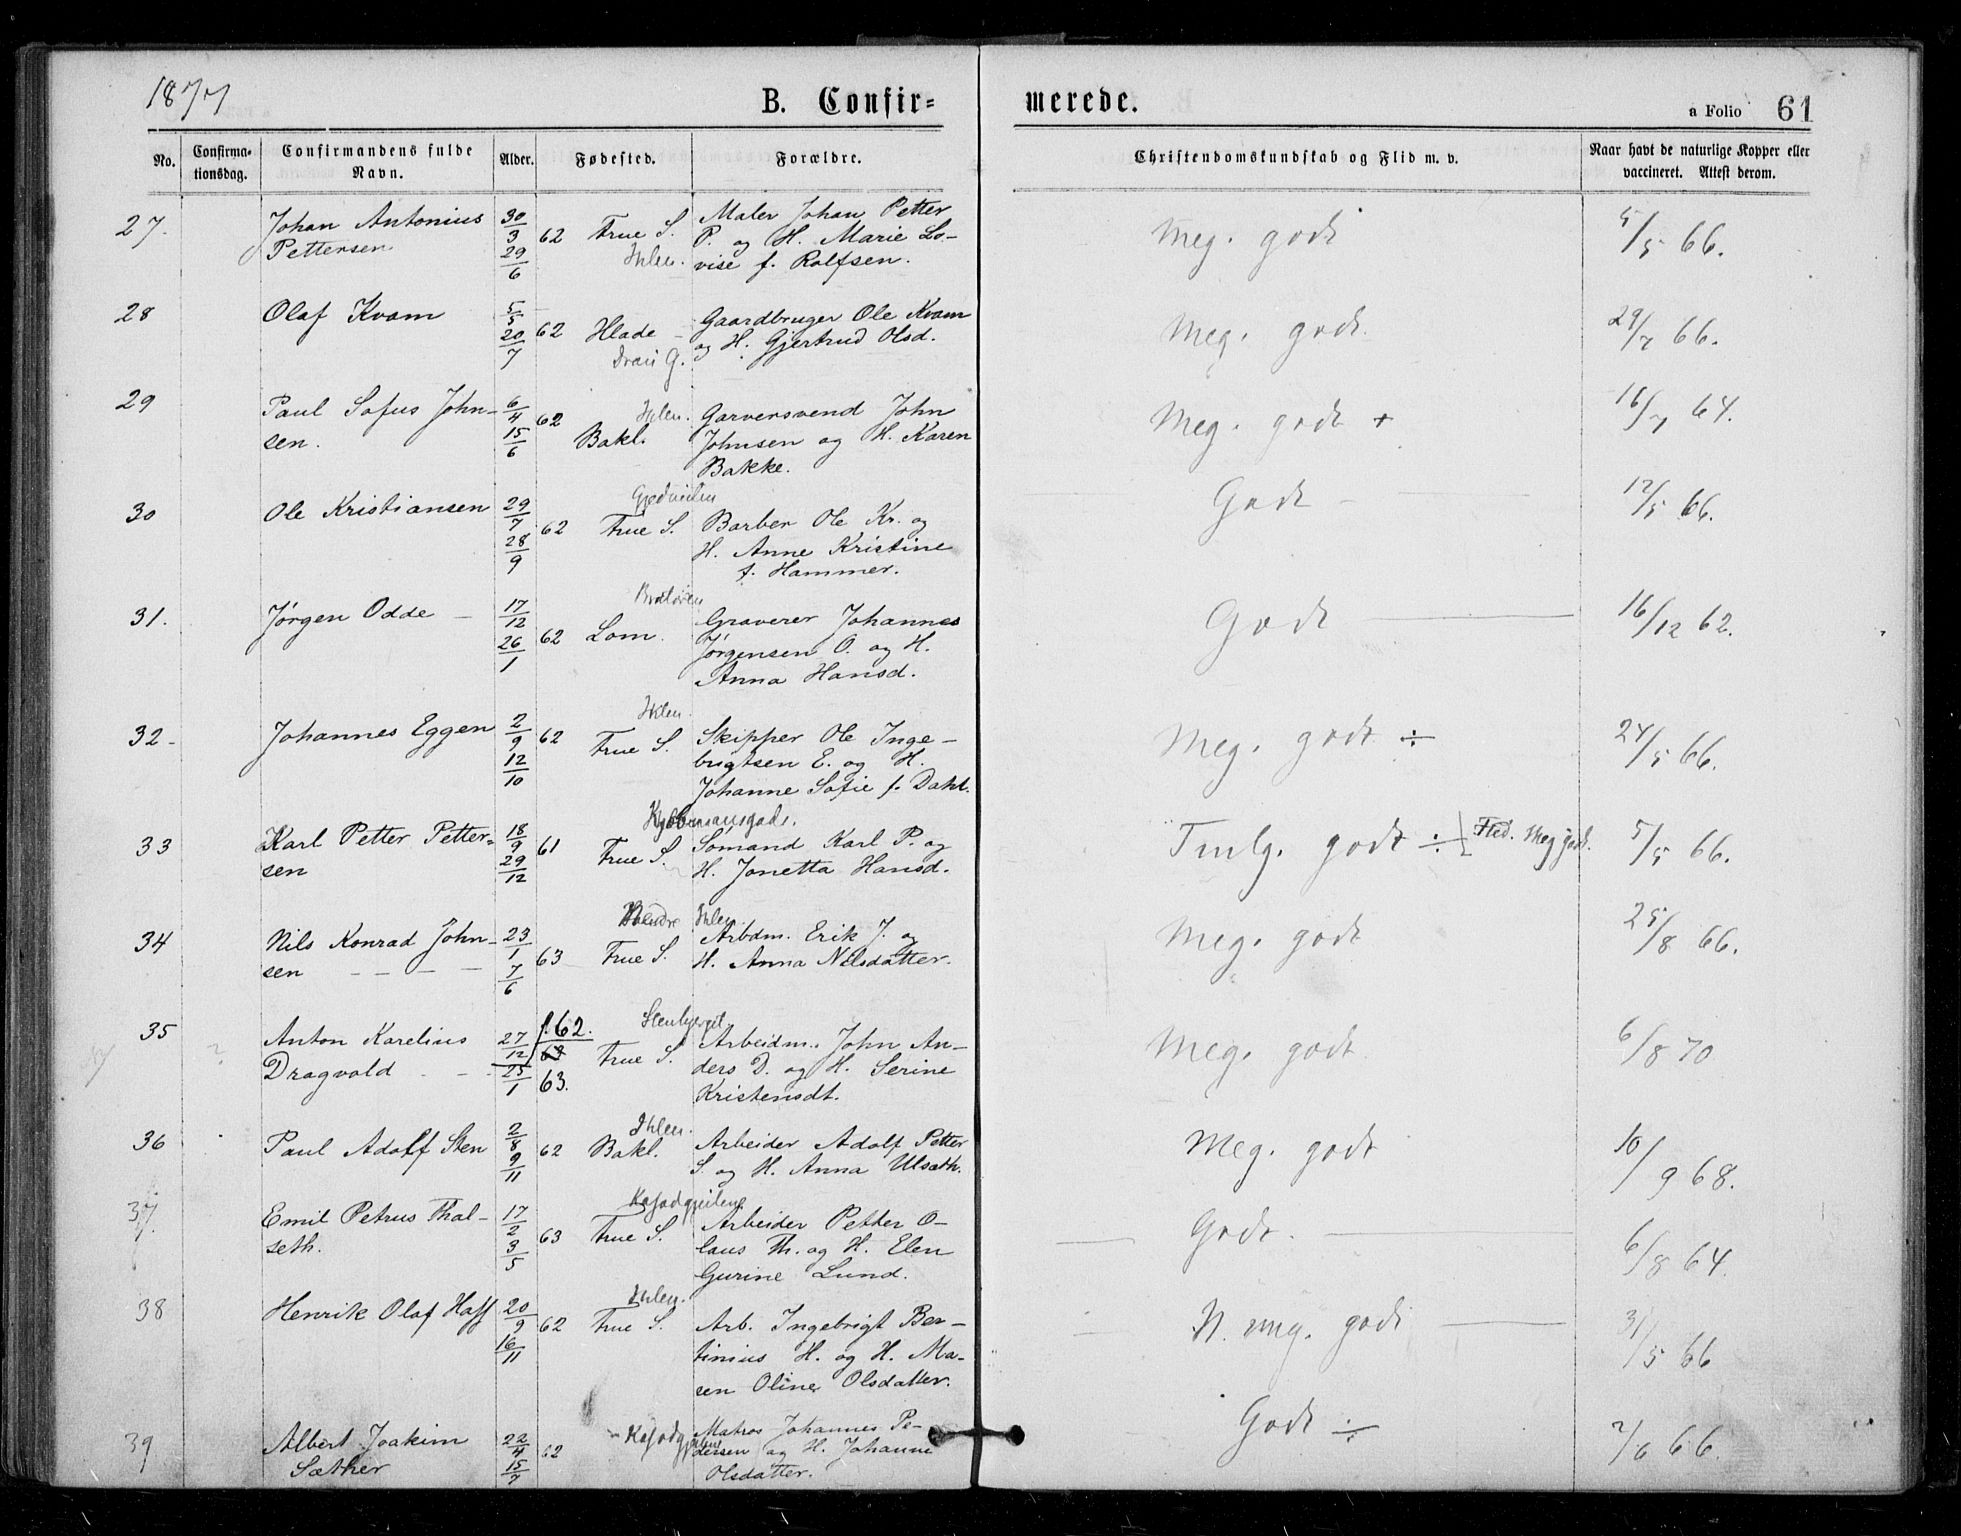 1877
B. Confir=
merede.
a Folio 61
No. Confirma-tionsdag. Confirmandens fulde Navn. Alder. Fødested. Forældre. Christendomskundskab og Flid m. v. Naar havt de naturlige Kopper eller vaccineret. Attest derom.
27. Johan Antonius 30/3 62 Frue S. Maler Johan Petter Meg. godt 5/5 66.
Pettersen 29/6 Ihlen. P. og H. Marie Lo-
vise f. Rolfsen.
28 Olaf Kvam 5/5 62 Hlade Gaardbruger Ole Kvam Meg. godt 29/7 66.
20/7 G. og H. Gjertrud Olsd.
29 Paul Sofus John- 6/4 62 Ihlen. Garversvend John Meg. godt + 16/7 64.
sen. 15/6 Bakl. Johnsen og H. Karen
Bakke.
30 Ole Kristiansen 29/7 62 Frue S. Barber Ole Kr. og Godt 12/5 66.
28/9 H. Anne Kristine
f. Hammer.
31. Jørgen Odde 17/12 62 Lom. Graverer Johannes Godt 16/12 62.
26/1 Jørgensen O. og H.
Anna Hansd.
Ihlen.
32- Johannes Eggen 2/9 62 Frue S. Skipper Ole Inge- Meg. godt ÷ 24/5 66.
12/10 brigtsen E. og H.
Johanne Sofie f. Dahl.
33 Karl Petter Petter- 18/9 61 Frue S. Sømand Karl P. og Tmlg. godt ÷ Flid. Meg godt. 5/5 66.
sen 29/12 H. Jonetta Hansd.
Ihlen
34 Nils Konrad John- 23/1 63 Frue S. Arbdm. Erik J. og Meg. godt 25/8 66.
sen 7/6 H. Anna Nilsdatter.
Stenbjerget
35 Anton Karelius 27/12 f. 62. 63 Frue S. Arbeidm. John An- Meg. godt 6/8 70
Dragvold 25/1 63. ders D. og H. Serine
Kristensdt.
Ihlen.
36 Paul Adolf Sten 2/8 62 Bakl. Arbeider Adolf Petter Meg. godt 10/9 68.
9/11 S. og H. Anna Ulsæth.
37. Emil Petrus Thal- 17/2 63 Frue S. Arbeider Petter O- Godt. 6/8 64.
seth. 3/5 laus Th. og H. Elen
Gurine Lund.
Ihlen.
38 Henrik Olaf Hoff 20/9 62 Frue S. Arb. Ingebrigt Ber- N. mg. godt 31/5 66
16/11 tinius H. og H. Ma-
ren Oline Olsdatter.
39 Albert Joakim 22/4 62 Matros Johannes Pe- Godt ÷ 2/6 66.
Sæther 15/7 dersen og H. Johanne
Olsdatter.